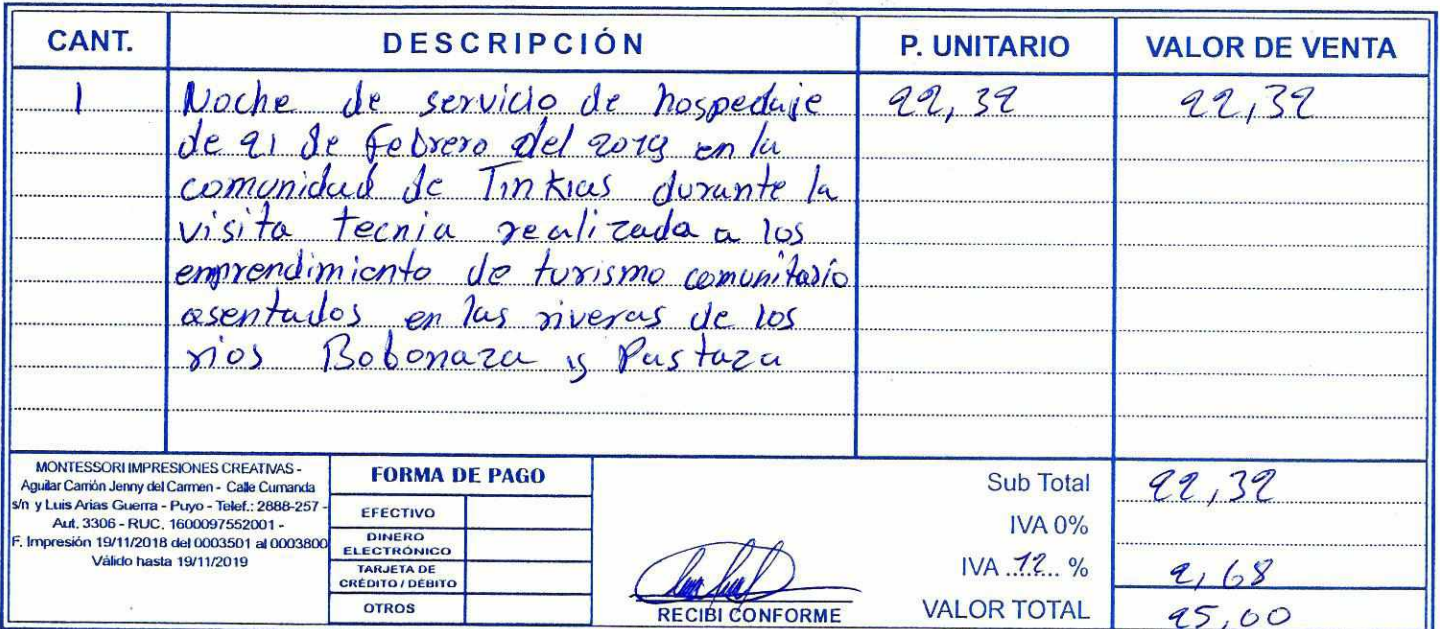 CANT. DESCRIPCIÓN P. UNITARIO VALOR DE VENTA
1 Noche de servicio de hospedaje 22,32 22,32
de 21 de Febrero del 2019 en la
comunidad de Tinkias durante la
visita tecnia realizada a los
emprendimiento de turismo comunitario
asentados en las riveras de los
rios Bobonaza y Pastaza
MONTESSORI IMPRESIONES CREATIVAS -
Aguilar Carrión Jenny del Carmen - Calle Cumanda
s/n y Luis Arias Guerra - Puyo - Telef.: 2888-257 -
Aut. 3306 - RUC. 1600097552001 -
F. Impresión 19/11/2018 del 0003501 al 0003800
Válido hasta 19/11/2019
FORMA DE PAGO
EFECTIVO
DINERO
ELECTRÓNICO
TARJETA DE
CRÉDITO / DÉBITO
OTROS
RECIBI CONFORME
Sub Total 22,32
IVA 0%
IVA 12 % 2,68
VALOR TOTAL 25,00